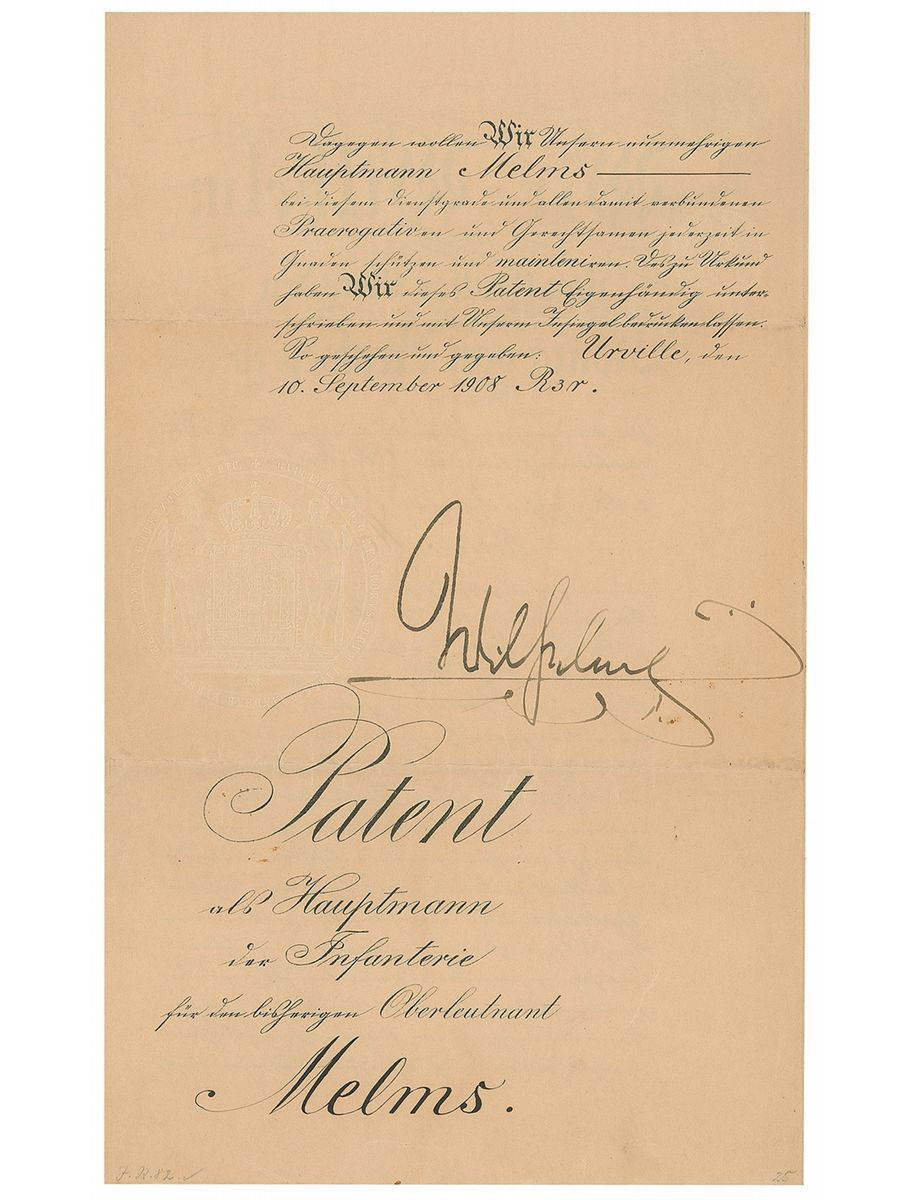 Dagegen wollen Wir Unsern nunmehrigen
Hauptmann Melms
bei diesem Dienstgrade und allen damit verbundenen
Praerogativen und Gerechtsamen jederzeit in
Gnaden schützen und mainteniren. Des zu Urkund
haben Wir dieses Patent Eigenhändig unter-
schrieben und mit Unserm Insiegel bedrucken lassen.
So geschehen und gegeben: Urville, den
10. September 1908 R3r.
Wilhelm
Patent
als Hauptmann
der Infanterie
für den bisherigen Oberleutnant
Melms.
J. R. 82.
25